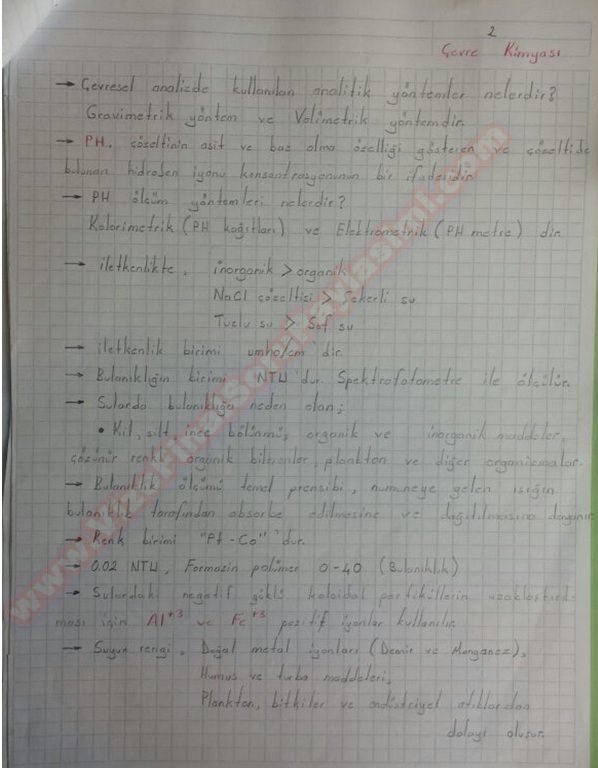 2
Çevre Kimyası
→ Çevresel analizde kullanılan analitik yöntemler nelerdir?
Gravimetrik yöntem ve Volimetrik yöntemdir.
→ PH, çözeltinin asit ve baz olma özelliği gösteren ve çözeltide
bulunan hidrojen iyonu konsantrasyonunun bir ifadesidir.
→ PH ölçüm yöntemleri nelerdir?
Kolorimetrik (PH kağıtları) ve Elektrometrik (PH metre) dir.
→ iletkenlikte, inorganik > organik
NaCl çözeltisi > Şekerli su
Tuzlu su > Saf su
→ iletkenlik birimi umho/cm dir.
→ Bulanıklığın birimi NTU 'dur. Spektrofotometre ile ölçülür.
→ Sularda bulanıklığa neden olan;
• Kil, silt, ince bölünmüş organik ve inorganik maddeler,
çözünür renkli organik bileşenler, plankton ve diğer organizmalar.
→ Bulanıklık ölçümü temel prensibi, numuneye gelen ışığın
bulanıklık tarafından absorbe edilmesine ve dağıtılmasına dayanır.
→ Renk birimi "Pt-Co" 'dur.
→ 0.02 NTU, Formazin polimer 0-40 (Bulanıklık)
→ Sulardaki negatif yüklü koloidal partiküllerin uzaklaştırıl-
ması için Al+3 ve Fe+3 pozitif iyonlar kullanılır.
→ Suyun rengi, Doğal metal iyonları (Demir ve Manganez),
Humus ve turba maddeleri,
Plankton, bitkiler ve endüstriyel atıklardan
dolayı oluşur.
www.VizeFinalSoruPaylasimi.com